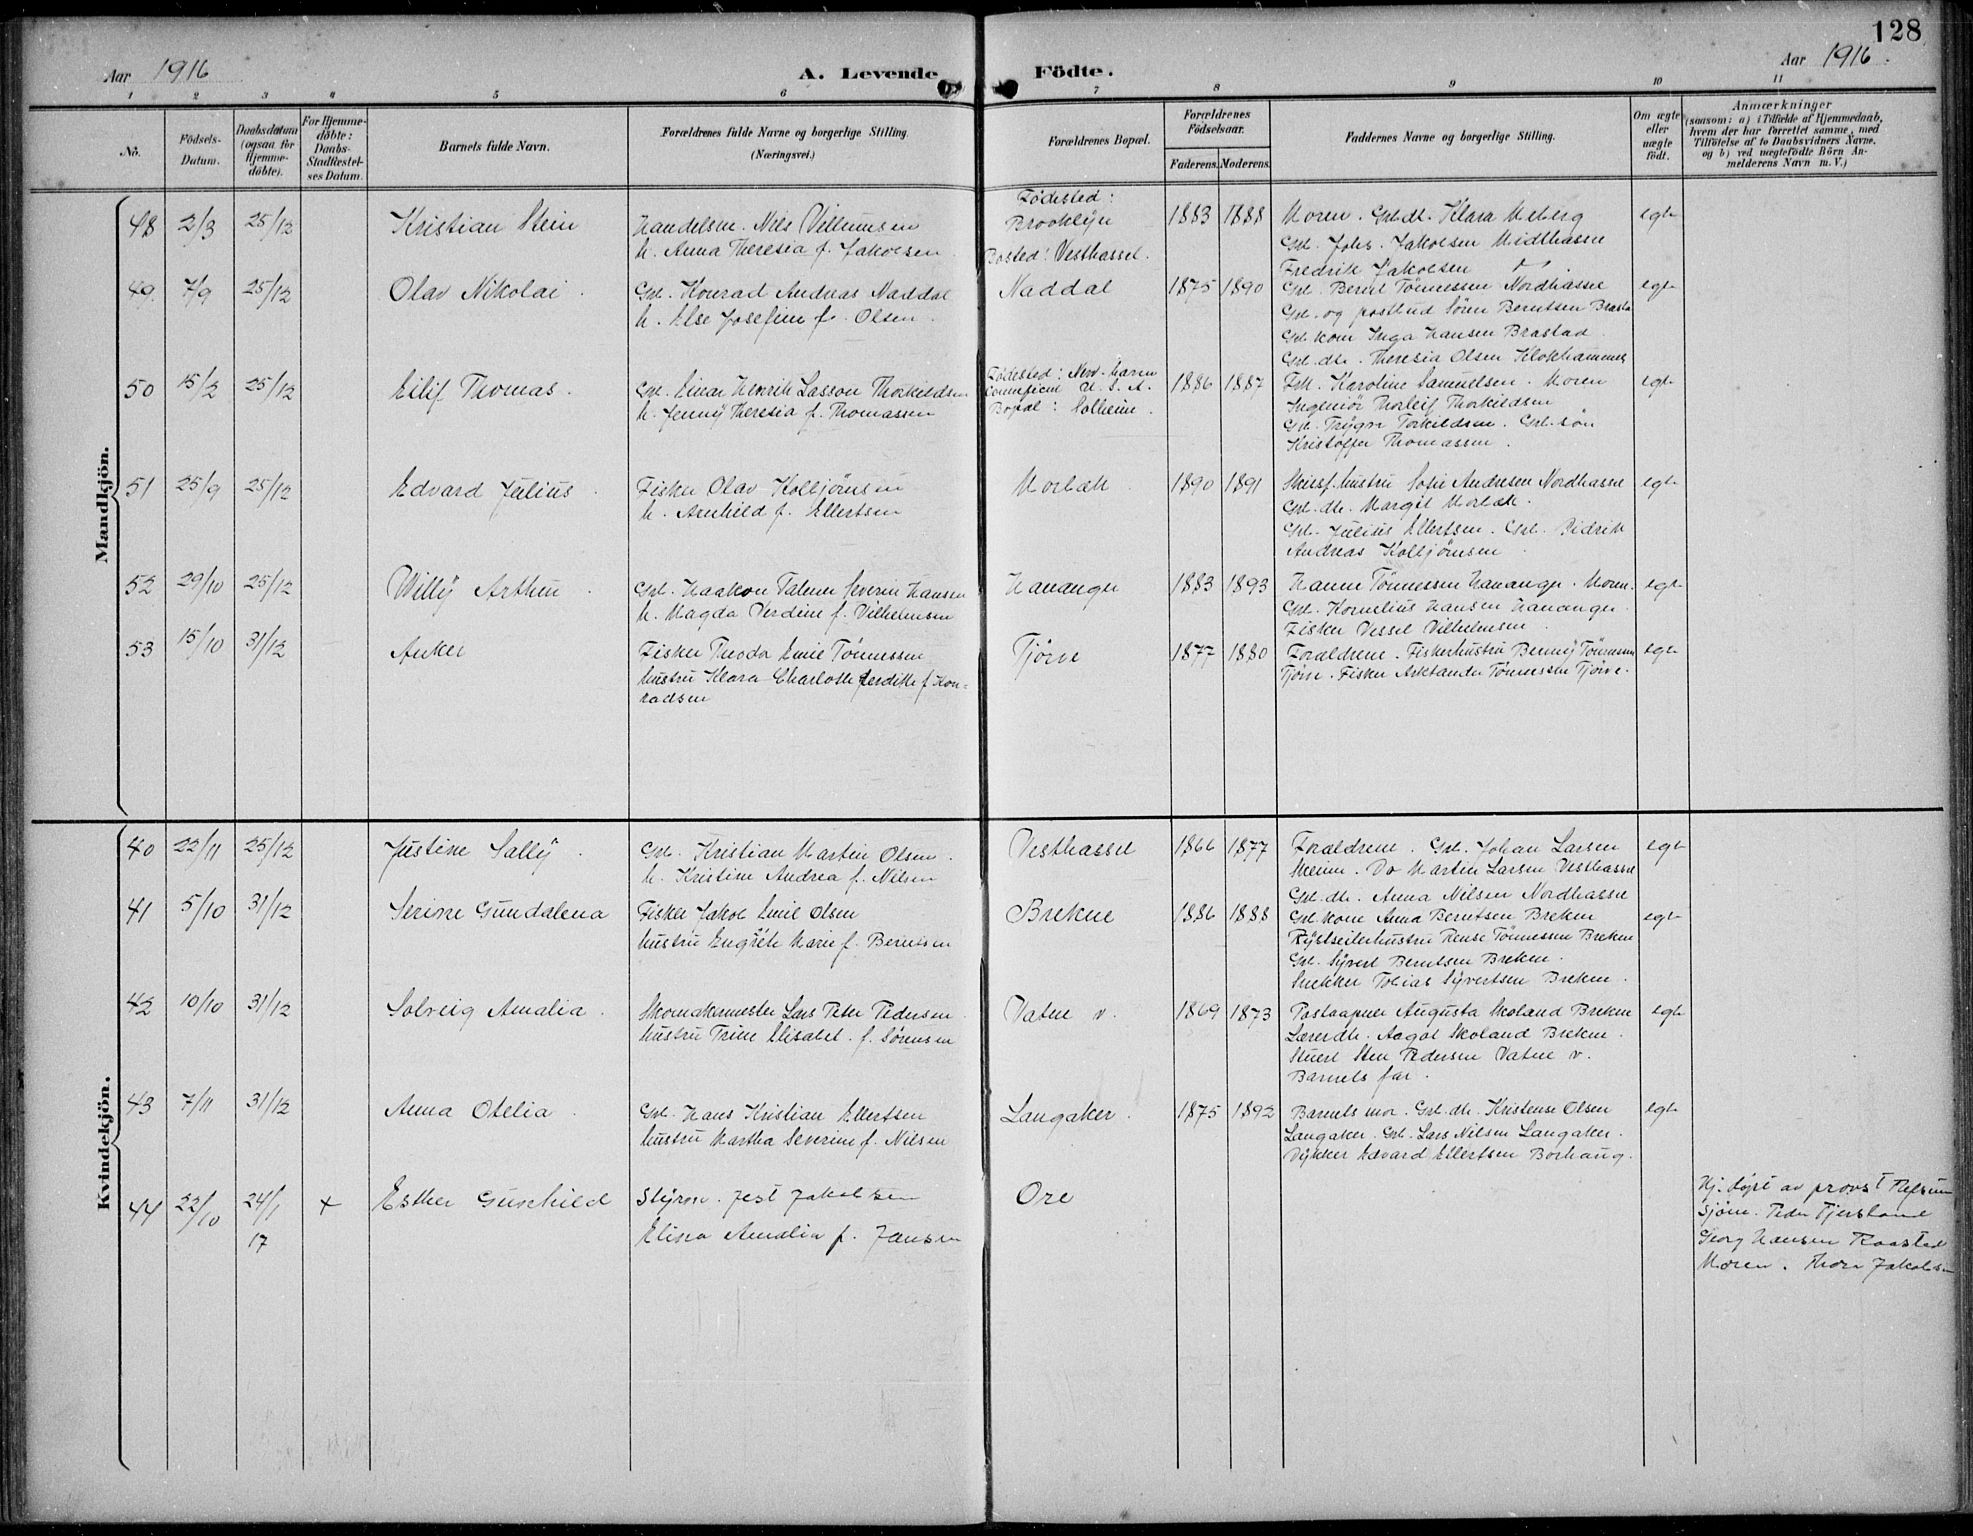 128
Aar 1916
A. Levende
Födte.
Aar 1916.
1 2 3 4 5 6 7 8 9 10 11
No.
Födsels-
Datum.
Daabsdatum
(ogsaa for
Hjemme-
döbte).
For Hjemme-
döbte:
Daabs-
Stadfæstel-
ses Datum.
Barnets fulde Navn.
Forældrenes fulde Navne og borgerlige Stilling.
(Næringsvei.)
Forældrenes Bopæl.
Forældrenes
Födselsaar.
Faderens.
Moderens.
Faddernes Navne og borgerlige Stilling.
Om ægte
eller
uægte
födt.
Anmærkninger
(saasom: a) i Tilfælde af Hjemmedaab,
hvem der har forrettet samme, med
Tilföielse af to Daabsvidners Navne,
og b) ved uægtefödte Börn An-
melderens Navn m. V.)
Mandkjön.
48 2/3 25/12 Kristian Stein
Handelsm. Nils Villumsen
h. Anna Theresia f. Jakobsen
Födested:
Brooklyn
Bosted: Vesthassel.
1883 1888
Moren. Gbl. dt. Klara Meberg
Gbl. Johs. Jakobsen Midthassel
Fredrik Jakobsen
egte
49 7/9 25/12 Olav Nikolai.
Gbl. Konrad Andreas Naddal
h. Else Josefine f. Olsen.
Naddal
1875 1890
Gbl. Bernt Tönnessen Nordhassel
Gbl. og postbud Sören Berntsen Brastad
Gbl. kone Inga Hansen Brastad
Gbl. dtr. Theresia Olsen Klokhammer
egte
50 15/2 25/12 Eilif Thomas.
Gbl. Einar Henrik Lasson Thorkildsen
h. Jenny Theresia f. Thomassen
Födested: New-haven
Conneticut U. S. A.
Bopæl: Solheim.
1886 1887
Frk. Karoline Samuelsen. Moren
Ingeniör Thorleif Thorkildsen
Gbl. Trygve Torkildsen. Gbl. sön
Kristoffer Thomassen.
egte
51 25/9 25/12 Edvard Julius.
Fisker Olav Kolbjörnsen
h. Arnhild f. Ellertsen
Morlak
1890 1891
Skipsf. hustru Sofie Andresen Nordhassel
Gbl. dtr. Margit Morlak.
Gbl. Julius Ellertsen. Gbl. Didrik
Andreas Kolbjörnsen.
egte
52 29/10 25/12 Willy Arthur.
Gbl. Haakon Talem Severin Hansen
h. Magda Verdine f. Vilhelmsen
Hananger
1883 1893
Hanne Tönnessen Hananger. Moren.
Gbl. Kornelius Hansen Hananger.
Fisker Vessel Vilhelmsen.
egte
53 15/10 31/12 Anker
Fisker Theodor Emil Tönnessen
hustru Klara Charlotte Ferdikke f. Kon-
radsen
Tjörve
1877 1880
Forældrene. Fiskerhustru Benny Tönnessen
Tjörve. Fisker Arktander Tönnessen Tjörve.
egte
Kvindekjön.
40 22/11 25/12 Justine Sally.
Gbl. Kristian Martin Olsen.
h. Kristine Andrea f. Nilsen
Vesthassel
1866 1877
Forældrene. Gbl. Johan Larsen
Meime. Do Martin Larsen Vesthassel
Gbl. dtr. Anna Nilsen Nordhassel
egte
41 5/10 31/12 Serine Gundalena
Fisker Jakob Emil Olsen
hustru Engrete Marie f. Berntsen
Brekne
1886 1888
Gbl. kone Anna Berntsen Brekne
Kystseilerhustru Rense Tönnessen Brekne
Gbl. Syvert Berntsen Brekne.
Snekker Tobias Syvertsen Brekne.
egte
42 10/10 31/12 Solveig Amalia.
Skomakermester Lars Peter Pedersen
hustru Trine Elisabet. f. Sörensen
Vatne v.
1869 1873
Postaapner Augusta Skoland Brekne
Lærerdtr. Aagot Skoland Brekne.
Stuert Sten Pedersen Vatne v.
Barnets far.
egte
43 7/11 31/12 Anna Otelia.
Gbl. Hans Kristian Ellertsen
hustru Martha Severine f. Nilsen
Langaker.
1875 1892
Barnets mor. Gbl. dtr. Kristense Olsen
Langaker. Gbl. Lars Nilsen Langaker.
Dykker Edvard Ellertsen Borhaug.
egte
44 22/10 24/1 17 + Esther Gunhild
Styrm. Jest Jakobsen
Elisa Amalia f. Jansen
Ore
Hj. döpt av provst Refsum
Sjöm. Peder Tjersland
Georg Hansen Raastad
Moren. Thora Jakobsen